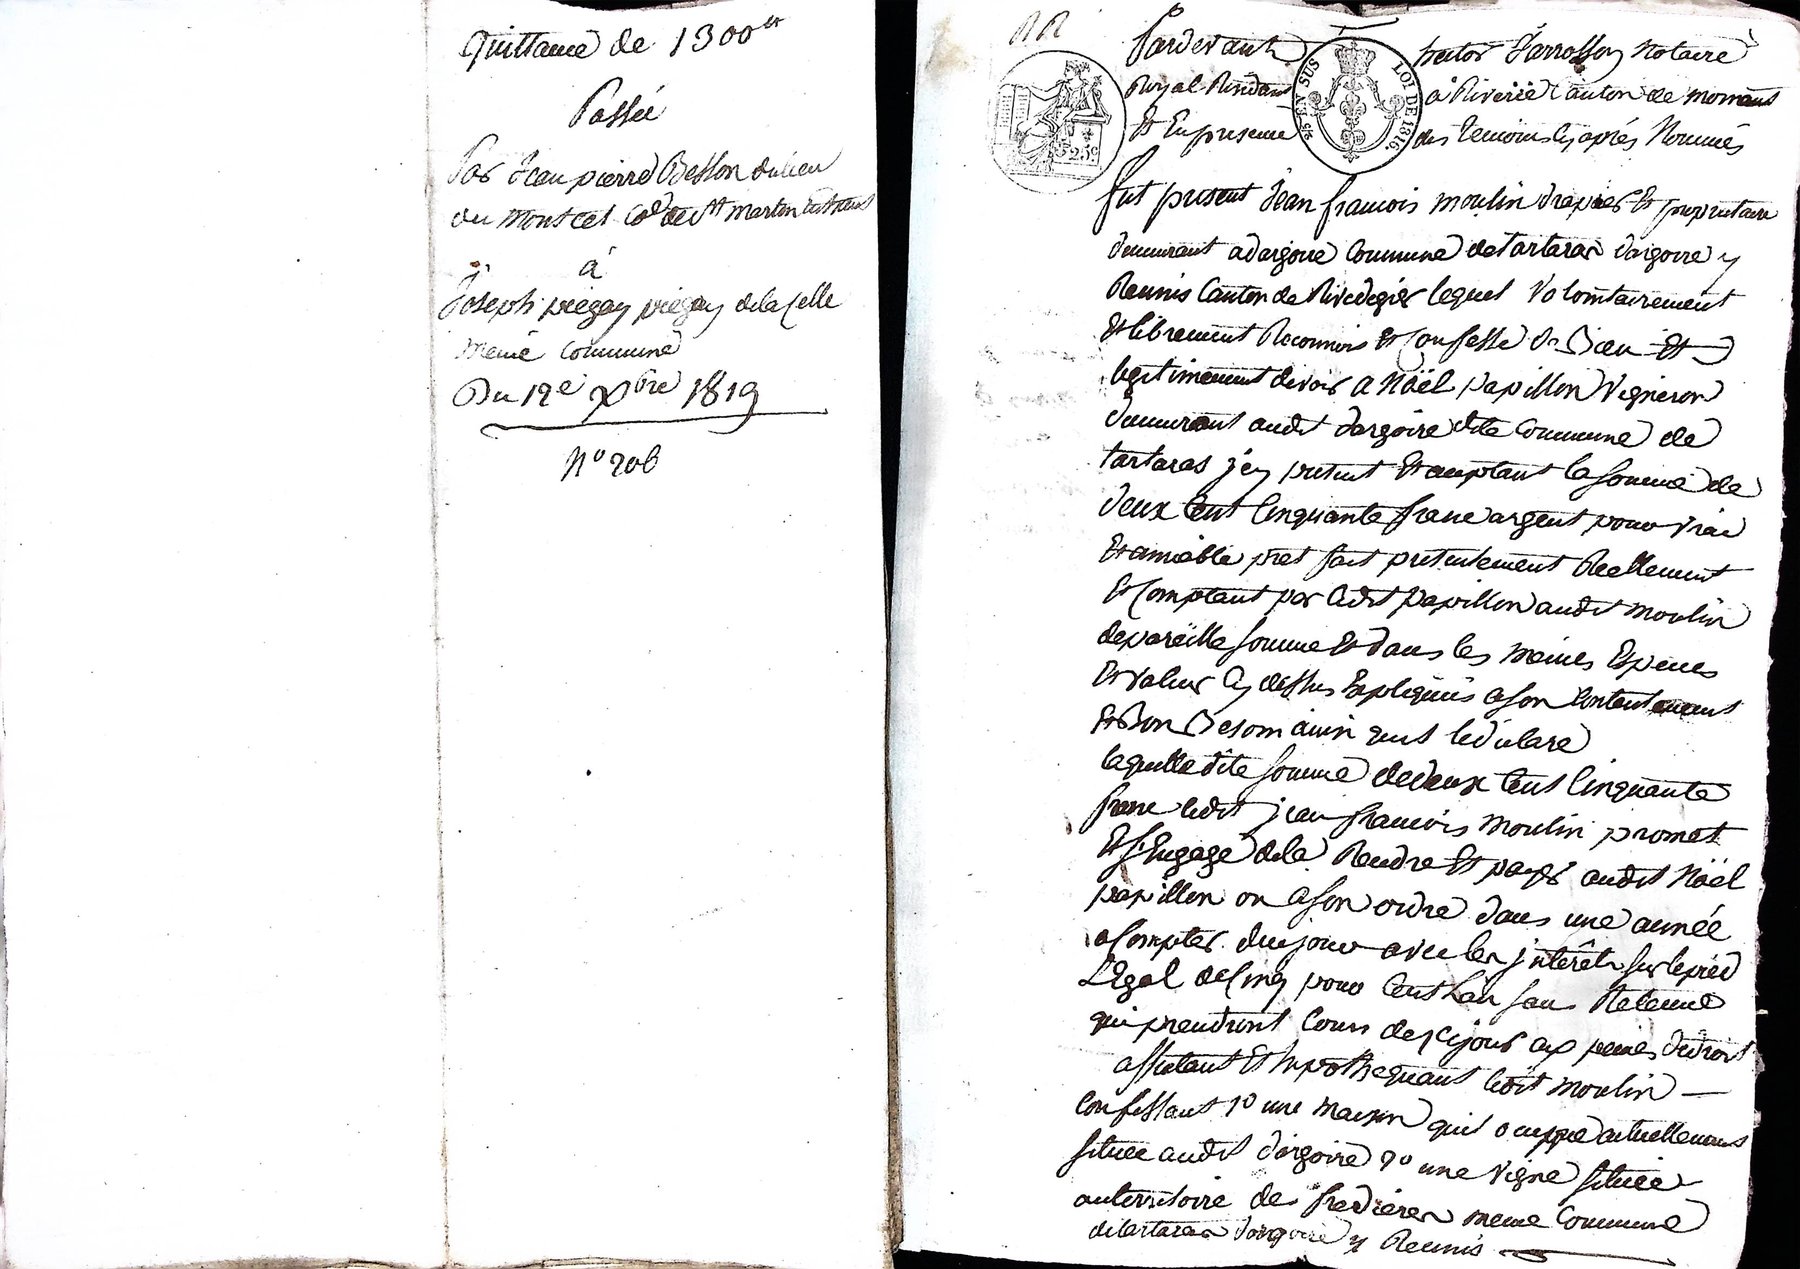 Quittance de 1300 tt
Passée
Par Jean pierre Besson du lieu
du Montcel Co.e de St Martin
à
Joseph piégay piégay de la Celle
même Commune
Du 12e Xbre 1819
N° 206
Pardevant hector Jarrosson Notaire
Royal Résidant à Riverië Canton de mornant
Et En presence des temoins Cy après Nommés
25 EN SUS
LOI DE 1816.
25c
fut present Jean francois moulin drapier Et propriétaire
demeurant a dargoire Commune de tartaras dargoire y
Reunis Canton de Rivedegier lequel Volontairement
Et librement Reconnois Et Confesse De Bien Et
legitimement devoir a Nöël papillon Vigneron
demeurant audit dargoire dite Commune de
tartaras j'cy présent Et acceptant la somme de
deux Cent Cinquante franc argent pour vrai
Et amiable pret fait presentement Réellement
Et Comptant par ledit papillon audit moulin
de pareille somme Et dans les mêmes Especes
Et valeur Cy dessus Expliquées a son Contentement
Et Bon Besom ainsi quil le déclare
laquelle dite somme de deux Cent Cinquante
franc ledit jean francois moulin promet
Et s'Engage de la Rendre Et payer audit Nöël
papillon ou a son ordre dans une année
a Compter du jour avec les jntérêts sur le pied
Légal de Cinq pour Cent L'an sans Retenue
qui prendront Cours de Ce jour aux peines de droit
affectant Et hypothequant ledit moulin
Confessant 1° une maison quil occuppe actuellement
située audit dargoire 2° une vigne située
au territoire de fredieres meme Commune
de tartaras dargoire y Réunis